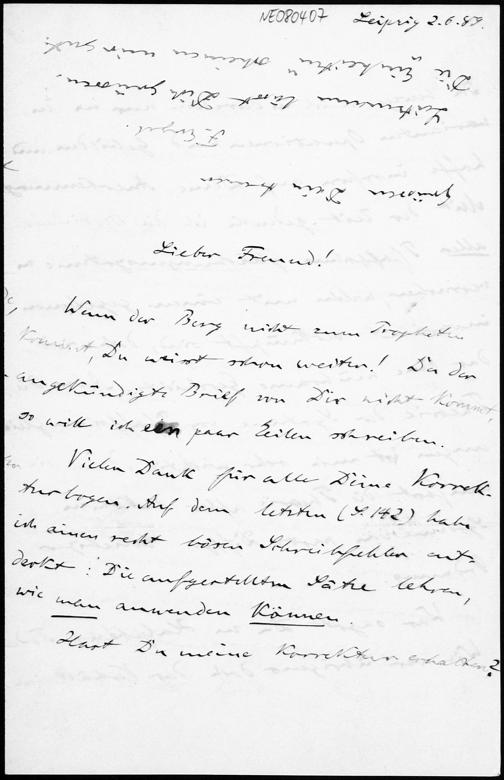 NE080407
Leipzig 2.6.89.
Lieber Freund!
Wenn der Berg nicht zum Propheten
kommt, Du weisst schon weiter! Da der
angekündigte Brief von Dir nicht kommt,
so will ich ein paar Zeilen schreiben.
Vielen Dank für alle Deine Korrek-
turbogen. Auf dem letzten (S. 142) habe
ich einen recht bösen Schreibfehler ent-
deckt: Die aufgestellten Sätze lehren,
wie man anwenden können.
Hast Du meine Korrektur erhalten?
grüssen Dein treuer
F. Engel.
lässt Dich grüssen.
Die Einheiten scheinen mir gut.